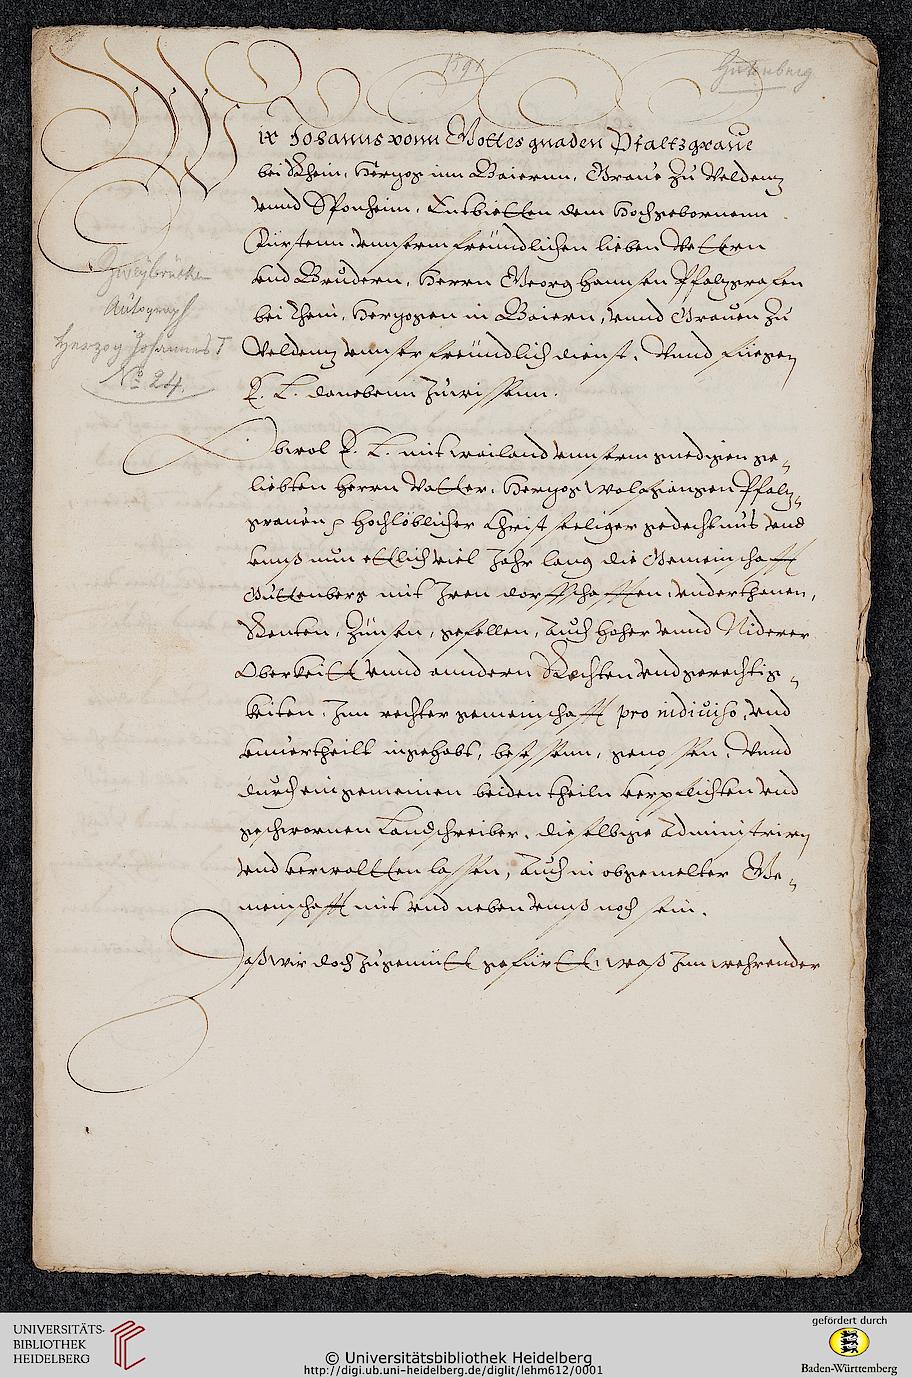 1591
Gutenberg
Wir Johannus vonn Gottes gnaden Pfaltzgraue
bei Rhein, Hertzog inn Baiernn, Graue Zu Veldentz
vnnd Sponheim, Entbietten dem Hochgebornenn
Fürstenn vnnserm freündlichen lieben Vettern
vnd Brudern, Herrn Georg Hannsen Pfaltzgrafen
bei Rhein, Hertzogen in Baiern, vnnd Grauen Zu
Veldentz vnnser freündlich dienst, Vnnd fuegen
E. L. danebenn Zuwissenn.
Zweybrücken
Autograph
Herzog Johannes I
No. 24.
Obwol E. L. mit weiland vnnserm gnedigen ge-
liebten Herrn Vatter, Hertzog Wolfgangen Pfaltz-
grauen p Hochlöblicher Christseeliger gedechtnus vnd
vnnß nun ettlich viel Jahr lang die Gemeinschafft
Guttenberg mit Jren dorffschafften, vnderthanen,
Renten, Zünsen, gefellen, Auch Hoher vnnd Niderer
Oberkeitt vnnd anndern Rechten vnd gerechtig-
keiten, Jnn rechter gemeinschafft pro indiuiso, vnd
vnuertheilt ingehabt, besessenn, genossen, Vnnd
durch ein gemeinen beiden theiln verpflichten vnd
geschwornen Landschreiber, dieselbige Administrirn
vnd verwaltten lassen, Auch in obgemelter Ge-
meinschafft mit vnd neben vnnß noch sein.
Daß wir doch Zu gemütt gefürtt, waß Jnn wehrender
UNIVERSITÄTS-
BIBLIOTHEK
HEIDELBERG
© Universitätsbibliothek Heidelberg
http://digi.ub.uni-heidelberg.de/diglit/lehm612/0001
gefördert durch
Baden-Württemberg